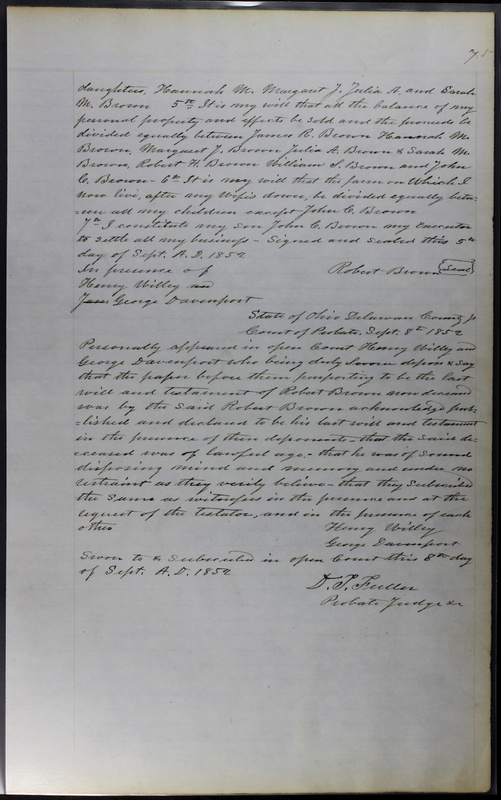 75
daughters, Hannah M. Margaret J. Julia A. and Sarah
M. Brown 5th It is my will that all the balance of my
personal property and effects be sold and the proceeds be
divided equally between James R. Brown Hannah M.
Brown, Margaret J. Brown Julia A. Brown & Sarah M.
Brown, Robert H. Brown William S. Brown and John
C. Brown - 6th It is my will that the farm on which I
now live, after my wifes dower, be divided equally betw-
-een all my children except John C. Brown
7th I constitute my son John C. Brown my Executor
to settle all my business - Signed and sealed this 5th
day of Sept. A.D. 1852
In presence of Robert Brown Seal
Henry Willey
George Davenport
State of Ohio Delaware County ss
Court of Probate, Sept. 8th 1852
Personally appeared in open Court Henry Willey and
George Davenport who being duly sworn depose & say
that the paper before them purporting to be the last
will and testament of Robert Brown now deceased
was by the said Robert Brown acknowledged pub-
-lished and declared to be his last will and testament
in the presence of these deponents - that the said de-
-ceased was of lawful age - that he was of sound
disposing mind and memory and under no
restraint as they verily believe - that they subscribed
the same as witnesses in the presence and at the
request of the testator, and in the presence of each
other Henry Willey
George Davenport
Sworn to & subscribed in open Court this 8th day
of Sept. A.D. 1852
D. T. Fuller
Probate Judge &c